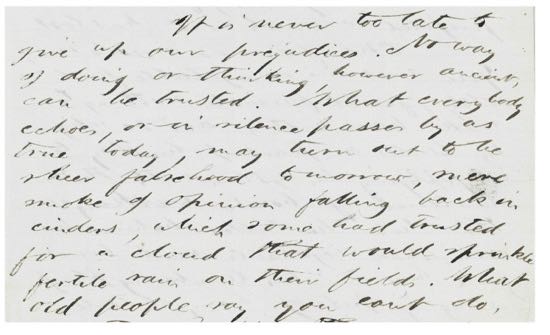 It is never too late to
give up our prejudices. No way
of doing or thinking, however ancient,
can be trusted. What everybody
echoes, or in silence passes by as
true today, may turn out to be
sheer falsehood tomorrow, mere
smoke of opinion falling back in
cinders, which some had trusted
for a cloud that would sprinkle
fertile rain on their fields. What
old people say you cant do,